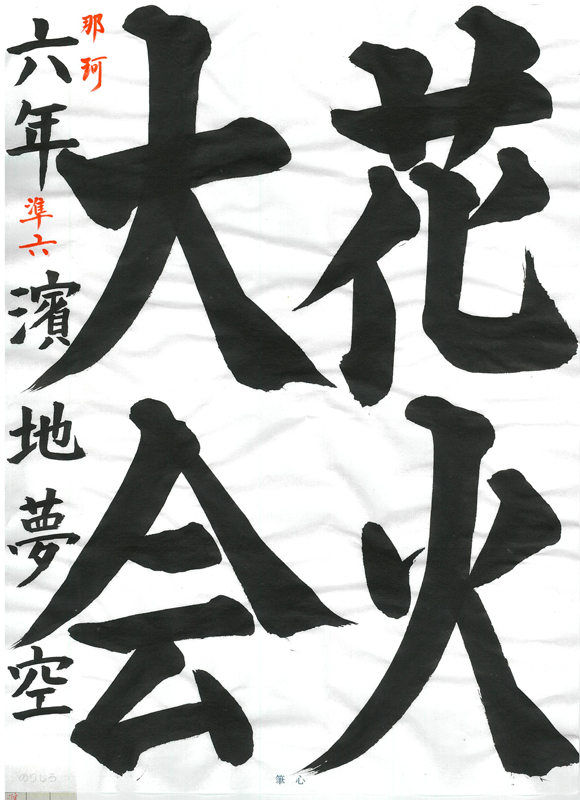 花火
大会
那珂
六年 濱地夢空
準六
筆心
のりしろ